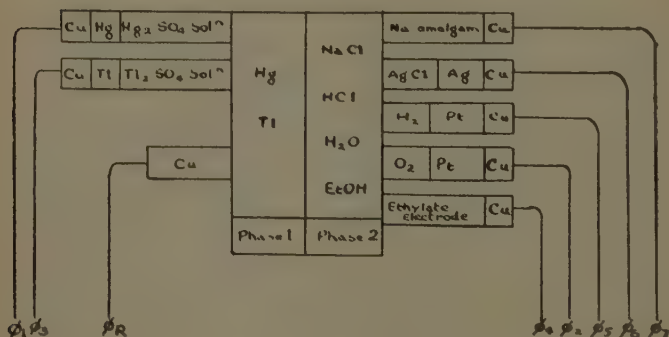 Cu Hg Hg2 SO4 Soln
Cu Tl Tl2 SO4 Soln
Cu
Hg
Tl
Phase 1
NaCl
HCl
H2O
EtOH
Phase 2
Na amalgam Cu
AgCl Ag Cu
H2 Pt Cu
O2 Pt Cu
Ethylate electrode Cu
Ø1 Ø3 ØR Ø4 Ø2 Ø5 Ø6 Ø7